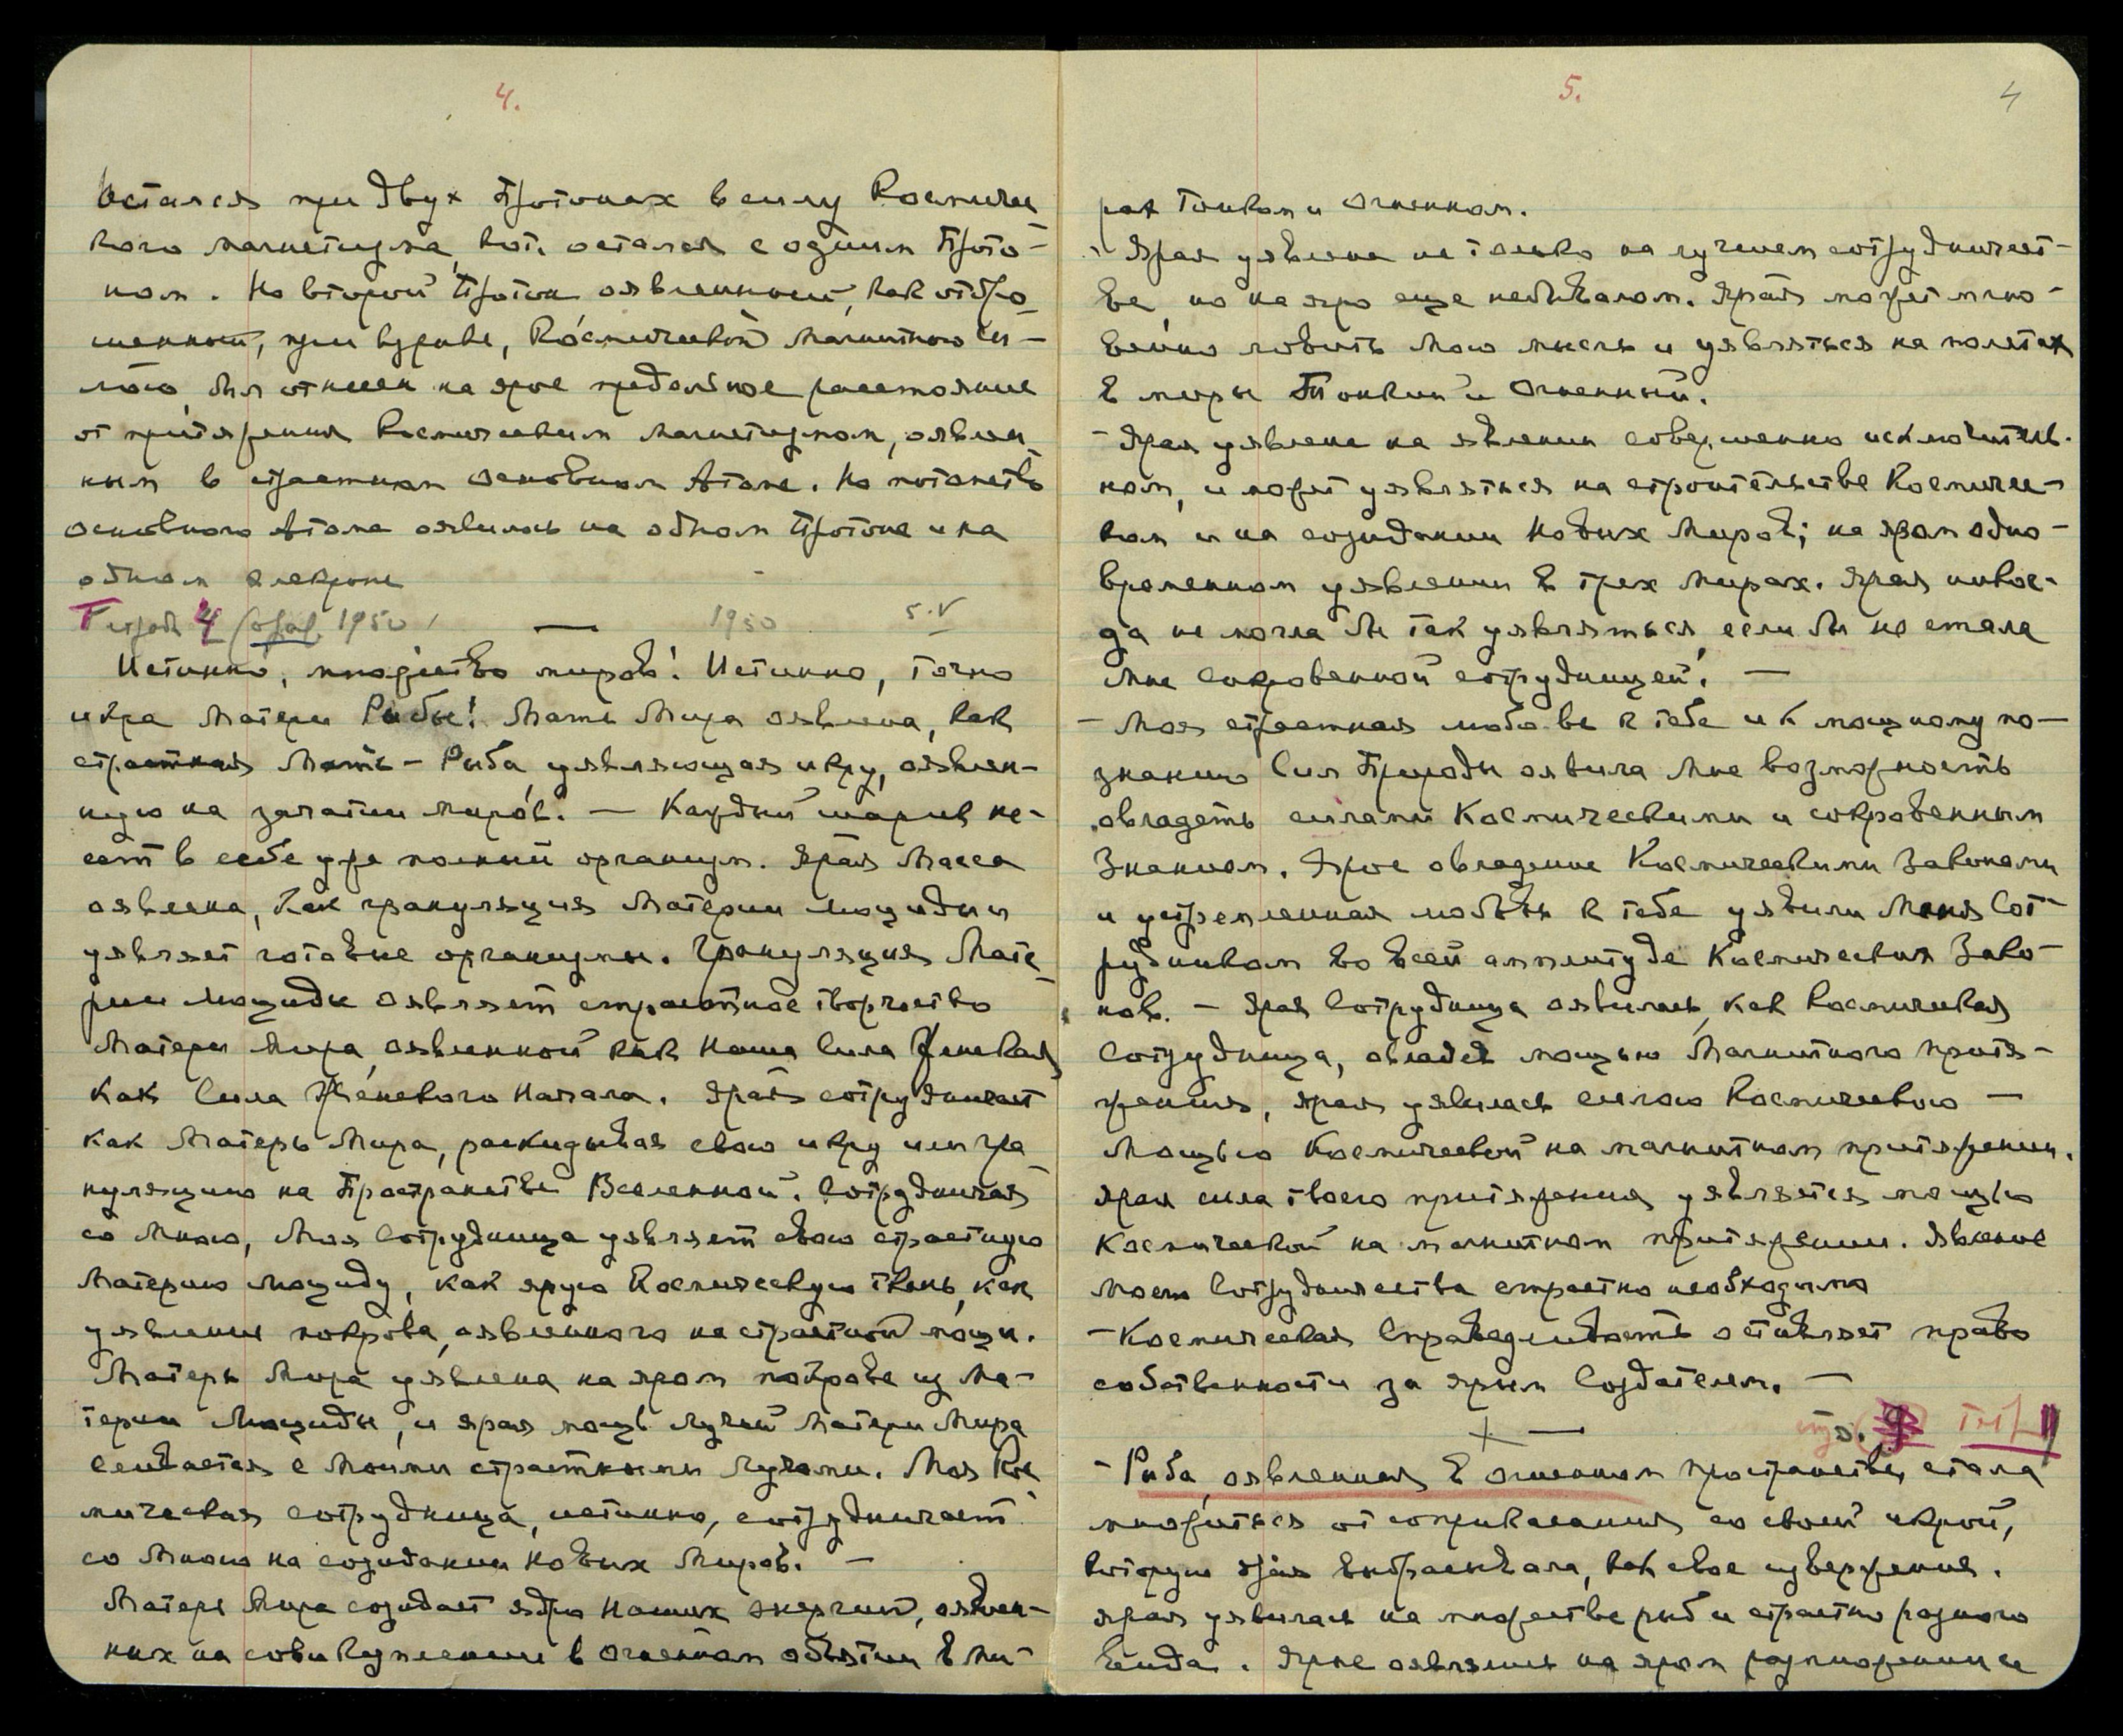 4.
остался при двух Протонах в силу Космиче
кого магнетизма, кот. остался с одним Прото-
ном. Но второй Протон оявленный, как отбро-
шенный, при взрыве, Космической Магнитною Си-
лою, был отнесен на ярое предельное расстояние
от притяжения Космическим Магнетизмом, оявлен
ным в страстном Основном Атоме. Но мощность
основного Атома оявилась на одном Протоне и на
одном электроне
Тетрадь 4 1950 — 1950 5.V
Истинно, множество миров! Истинно, точно
икра Матери Рыбы! Мать Мира оявлена, как
страстная Мать – Рыба, уявляющая икру, оявлен-
ную на зачатии миров. — Каждый шарик не-
сет в себе уже полный организм. Ярая Масса
оявлена, как грануляция Материи Люциды и
уявляет готовые организмы. Грануляция Мате-
рии Люциды оявляет страстное творчество
Матери Мира, оявленной как Наша Сила Женская,
как Сила Женского Начала. Ярая сотрудничает
как Матерь Мира, раскидывая свою икру или гра
нуляцию на Пространстве Вселенной. Сотрудничая
со Мною, Моя Сотрудница уявляет свою страстную
Материю Люциду, как ярую Космическую ткань, как
уявление покрова, оявленного на страстной мощи.
Матерь Мира уявлена на яром покрове из Ма-
терии Люциды, и ярая мощь Лучей Матери Мира
сливается с Моими страстными Лучами. Моя Кос
мическая сотрудница, истинно, сотрудничает
со Мною на созидании Новых Миров. —
Матерь Мира созидает ядро Наших энергий, оявлен-
ных на совокуплении в Огненном объятии в Ми-
5. 4
рах Тонком и Огненном.
Ярая уявлена не только на лучшем сотрудничест-
ве, но на яро еще небывалом. Ярая может мгно-
венно ловить Мою мысль и уявляться на полетах
в миры Тонкий и Огненный.
– Ярая уявлена на явлении совершенно исключитель-
ном, и может уявляться на строительстве Космичес-
ком и на созидании Новых Миров; на яром одно-
временном уявлении в трех Мирах. Ярая никог-
да не могла бы так уявляться, если бы не стала
Мне Сокровенной сотрудницей. —
– Моя страстная любовь к тебе и к мощному по-
знанию Сил Природы оявила Мне возможность
овладеть силами Космическими и сокровенным
Знанием. Ярое овладение Космическими Законами
и устремленная любовь к тебе уявили Меня Сот-
рудником во всей амплитуде Космических Зако-
нов. – Ярая Сотрудница оявилась, как Космическая
Сотрудница, овладев мощью Магнитного притя-
жения, ярая уявилась силою Космическою —
Мощью Космической на магнитном притяжении.
Ярая сила твоего притяжения уявляется мощью
Космической на магнитном притяжении. Явление
моего Сотрудничества страстно необходимо
– Космическая Справедливость оставляет право
собственности за ярым Создателем. —
+ —
– Рыба, оявленная в огненном пространстве, стала
множиться от соприкасания со своей икрой,
которую ярая выбрасывала, как свое извержение.
Ярая уявилась на множестве рыб и страстно разного
вида. Ярые оявления на яром размножении и